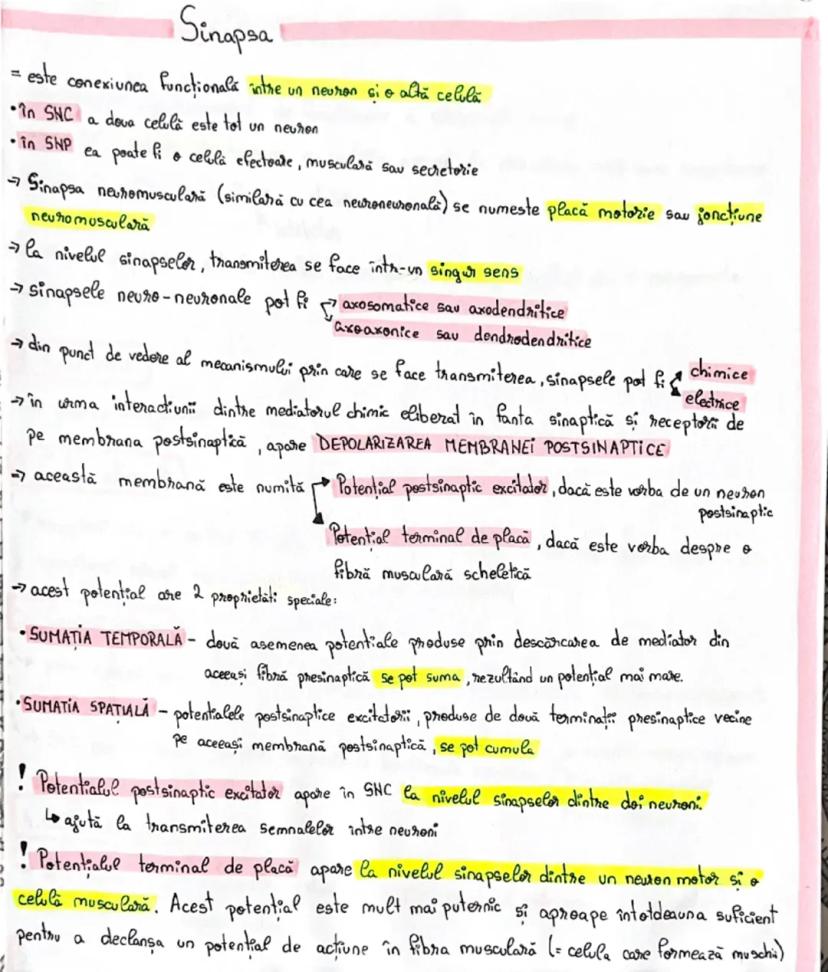 Sinapsa
= este conexiunea funcțională între un neuron și o altă celulă
• în SNC a doua celulă este tot un neuron
• în SNP ea poate fi o celulă efectoare, musculară sau secretorie
→ Sinapsa neuromusculară (similară cu cea neuroneuronală) se numeste placă motorie sau joncțiune
neuromusculară
→ la nivelul sinapselor, transmiterea se face într-un singur sens
→ sinapsele neuro-neuronale pot fi → axosomatice sau axodendritice
axoaxonice sau dendrodendritice
→ din punct de vedere al mecanismului prin care se face transmiterea, sinapsele pot fi chimice
electrice
→ în urma interactiunii dintre mediatorul chimic eliberat în fanta sinaptică și receptorii de
pe membrana postsinaptică, apare DEPOLARIZAREA MEMBRANEI POSTSINAPTICE
→ această membrană este numită → Potențial postsinaptic excitator, dacă este vorba de un neuron
postsinaptic
Potențial terminal de placă, dacă este vorba despre o
fibră musculară scheletică
→ acest potential are 2 proprietăți speciale:
• SUMAȚIA TEMPORALĂ - două asemenea potentiale produse prin descărcarea de mediator din
aceeasi fibră presinaptică se pot suma, rezultând un potențial mai mare.
• SUMATIA SPAȚIALĂ - potentialele postsinaptice excitatorii, produse de două terminații presinaptice vecine
pe aceeași membrană postsinaptică, se pot cumula
! Potentialul postsinaptic excitator apare în SNC la nivelul sinapselor dintre doi neuroni.
↳ ajută la transmiterea semnalelor între neuroni
! Potențialul terminal de placă apare la nivelul sinapselor dintre un neuron motor și o
celulă musculară. Acest potential este mult mai puternic și aproape întotdeauna suficient
pentru a declanșa un potențial de acțiune în fibra musculară (= celula care formează muschii)